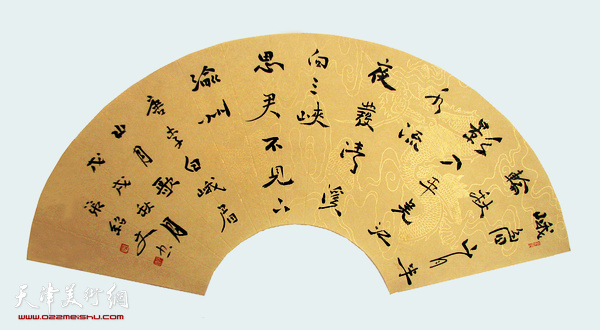 峨眉山月半
輪秋
影入平羌江
水流
夜發清溪
向三峽
思君不見下
渝州
唐李白峨眉
山月歌
戊戌秋月
張紹文书
天津美术网
www.022meishu.com